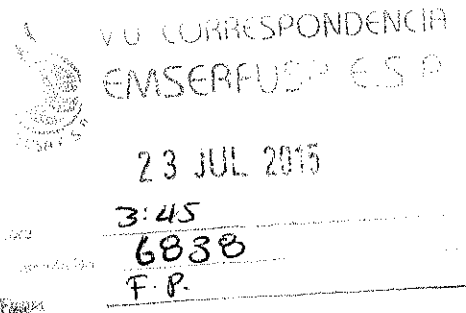 VU CORRESPONDENCIA
EMSERFUSA E.S.P
23 JUL 2015
3:45
6838
F.P.
Firma